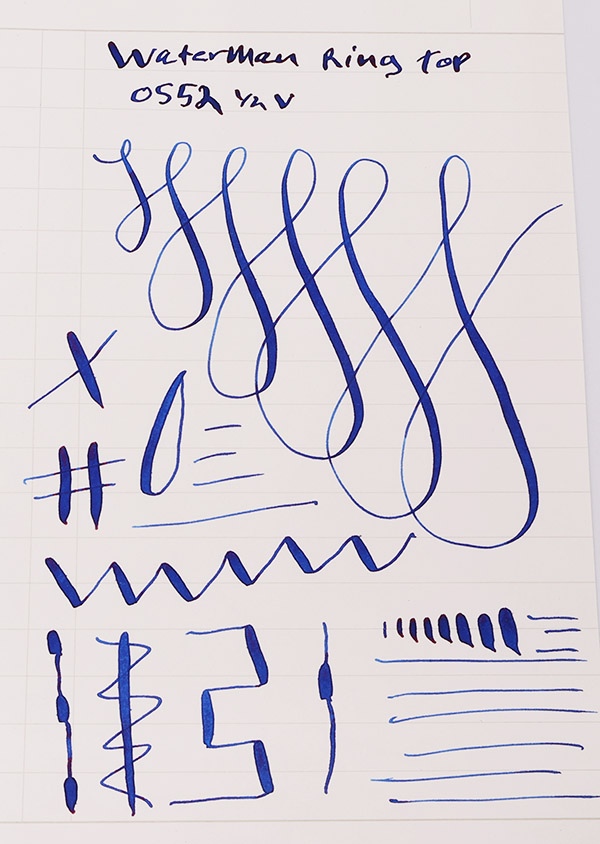 Waterman Ring top
0552 1/2 V